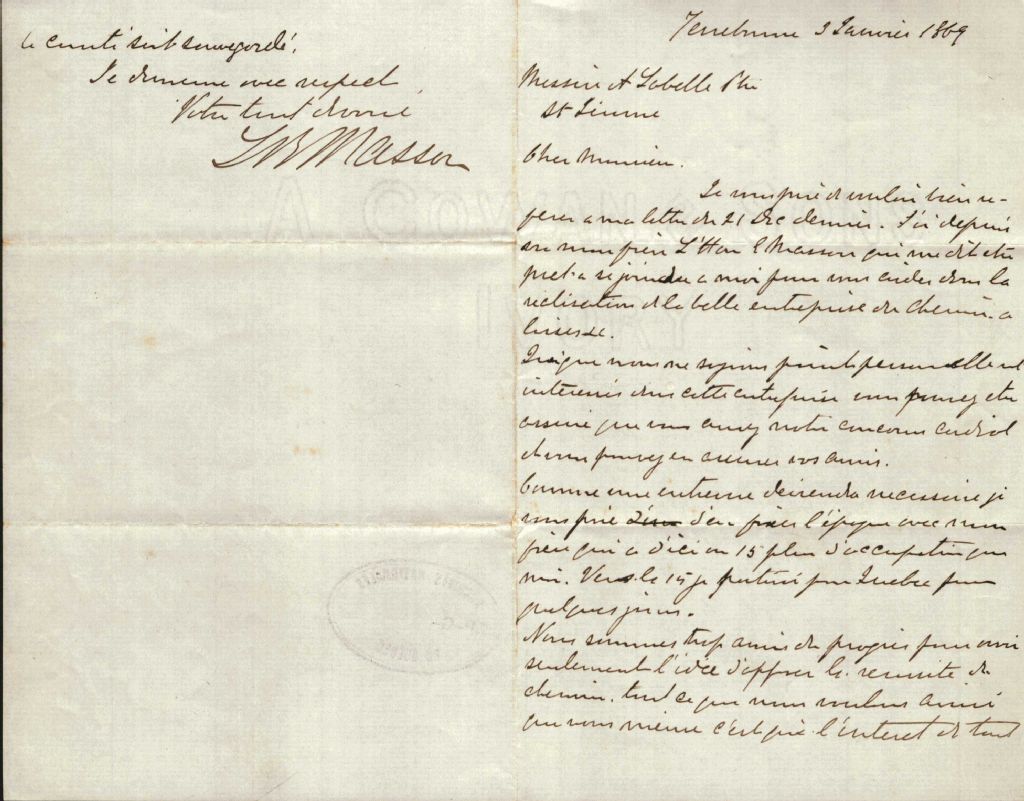 Terrebonne 3 Janvier 1869
Messire A Labelle Ptre
St Jérome
Cher Monsieur.
Je vous prie de vouloir bien re-
ferer a ma lettre du 21 Dec dernier. J'ai depuis
vu mon frère L'Hon E Masson qui me dit etre
pret a se joindre a moi pour vous aider dans la
réalisation de la belle entreprise du chemin a
lisses.
Quoique nous ne soyions point personnellement
interessés dans cette entreprise vous pouvez etre
assuré que vous aurez notre concours cordial
et vous pouvez en assurer vos amis.
Comme une entrevue deviendra necessaire je
vous prie d'en fixer l'époque avec mon
frère qui a d'ici au 15 plus d'occupation que
moi. Vers le 15 je partirai pour Quebec pour
quelques jours.
Nous sommes trop amis du progrès pour avoir
seulement l'idée d'opposer la reussite du
chemin. tout ce que nous voulons aussi
que vous meme c'est que l'interet de tout
le comté soit sauvegardé.
Je demeure avec respect
Votre tout devoué
LRMasson